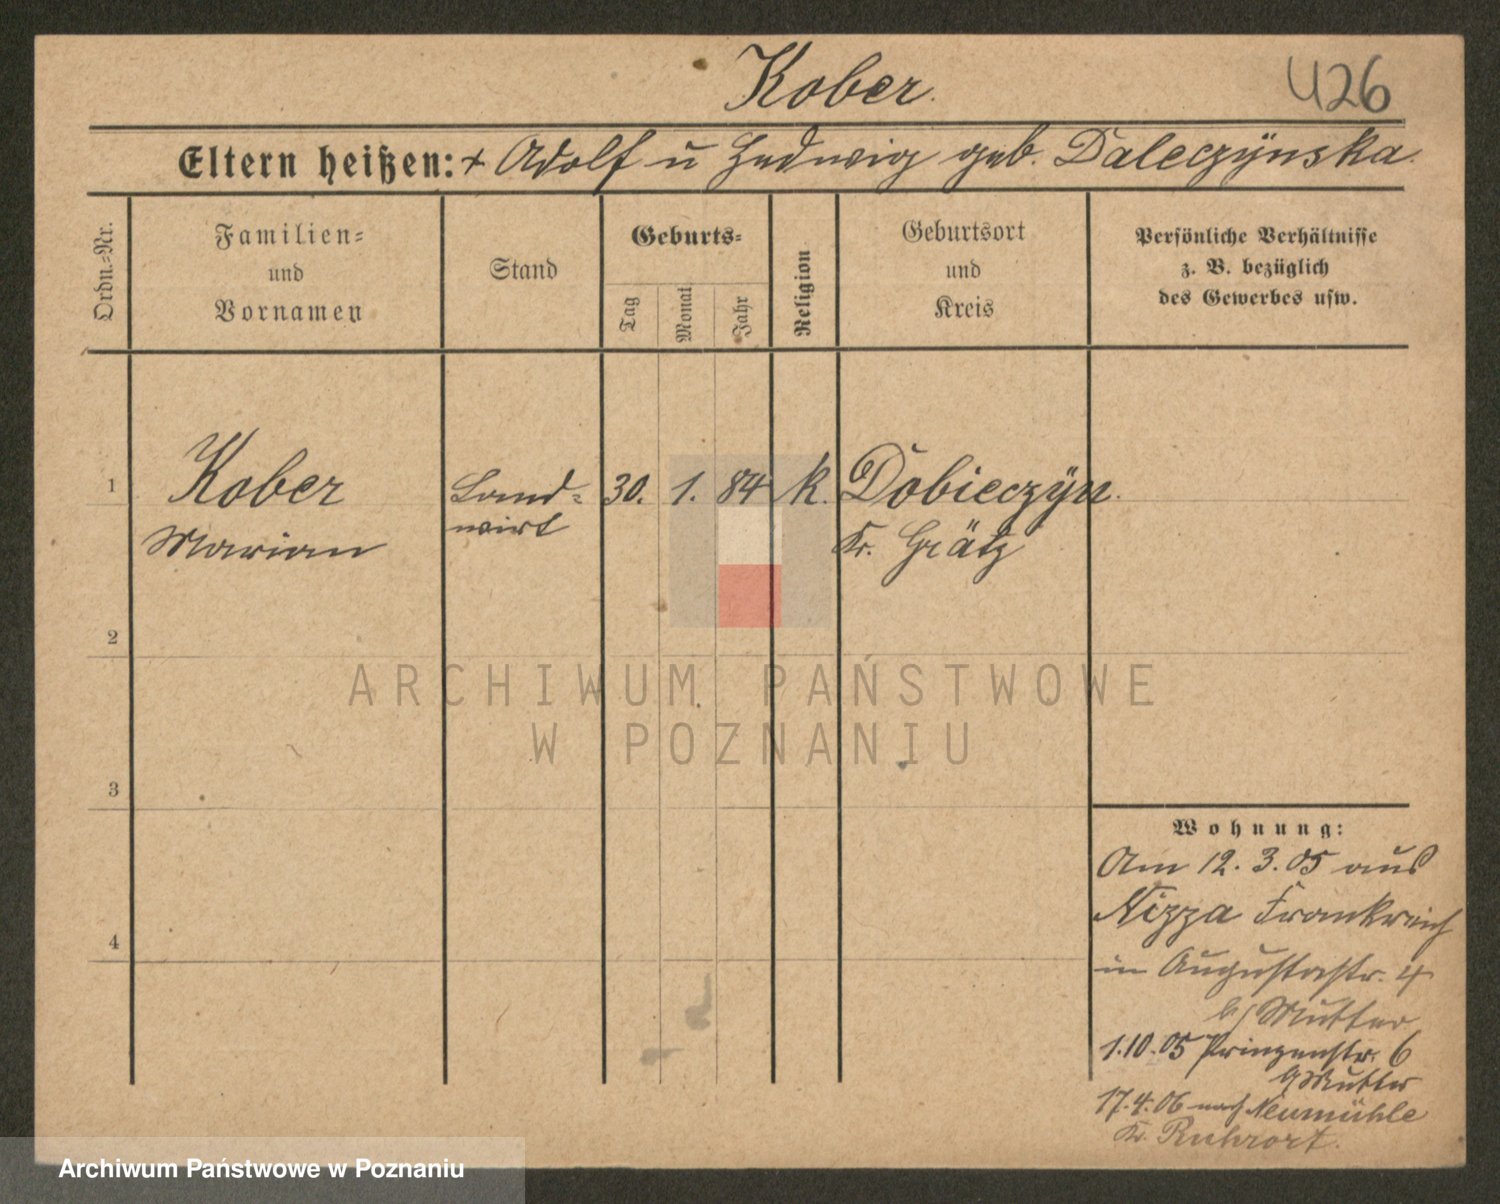 Kober.
426
Eltern heißen: + Adolf u Hedwig geb. Daleczÿnska.
Ordn.=Nr.
Familien=
und
Vornamen
Stand
Geburts=
Tag
Monat
Jahr
Religion
Geburtsort
und
Kreis
Persönliche Verhältnisse
z. B. bezüglich
des Gewerbes usw.
1
Kober
Marian
Land=
wirt
30. 1. 84
k.
Dobieczÿn.
Kr. Grätz
2
3
4
Wohnung:
Am 12. 3. 05 aus
Nizza Frankreich
in Augustastr. 4
b/ Mutter
1.10.05 Prinzenstr. 6
b/Mutter
17.4.06 nach Neumühle
Kr. Ruhrort.
ARCHIWUM PAŃSTWOWE
W POZNANIU
Archiwum Państwowe w Poznaniu